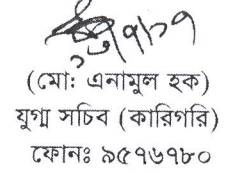 (মো: এনামুল হক)
যুগ্ম সচিব (কারিগরি)
ফোনঃ ৯৫৭৬৭৮০